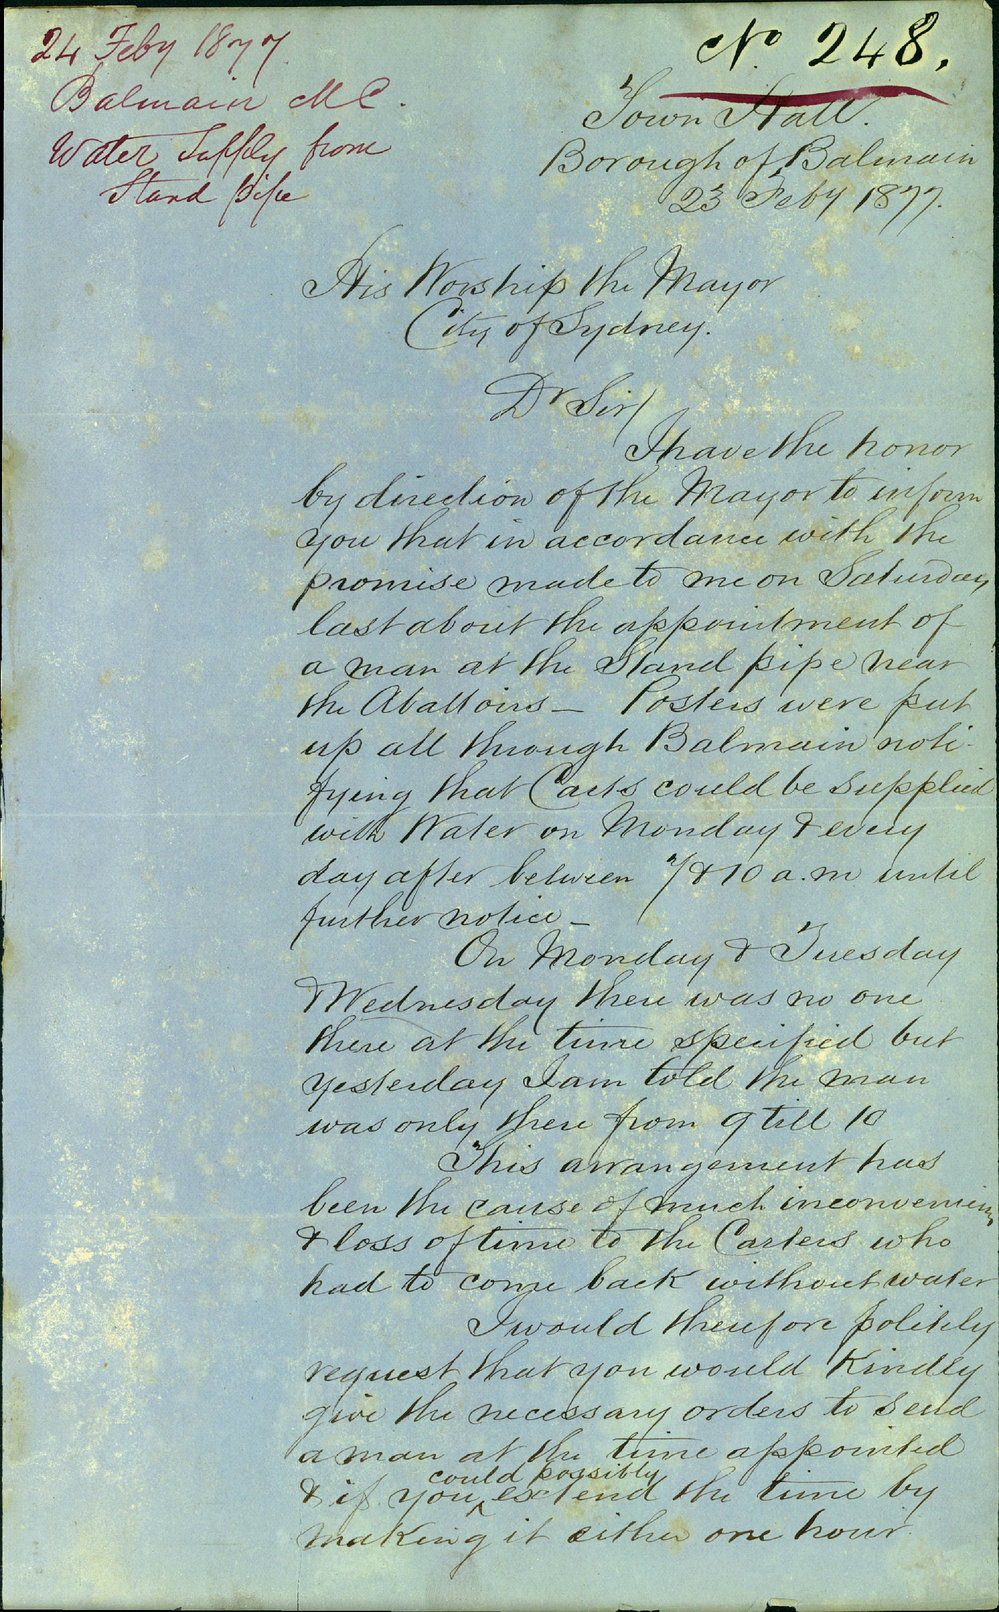 24 Feby 1877.
Balmain M C.
Water Supply from
Stand pipe
No. 248.
Town Hall.
Borough of Balmain
23 Feby 1877.
His Worship the Mayor
City of Sydney.
Dr Sir/
I have the honor
by direction of the Mayor to inform
you that in accordance with the
promise made to me on Saturday
last about the appointment of
a man at the Stand pipe near
the Abattoirs — Posters were put
up all through Balmain noti-
fying that Carts could be supplied
with Water on Monday & every
day after between 7 & 10 a.m until
further notice —
On Monday & Tuesday
& Wednesday there was no one
there at the time specified but
yesterday I am told the man
was only there from 9 till 10
This arrangement has
been the cause of much inconvenience
& loss of time to the Carters who
had to come back without water
I would therefore politely
request that you would Kindly
give the necessary orders to send
a man at the time appointed
& if you could possibly extend the time by
making it either one hour